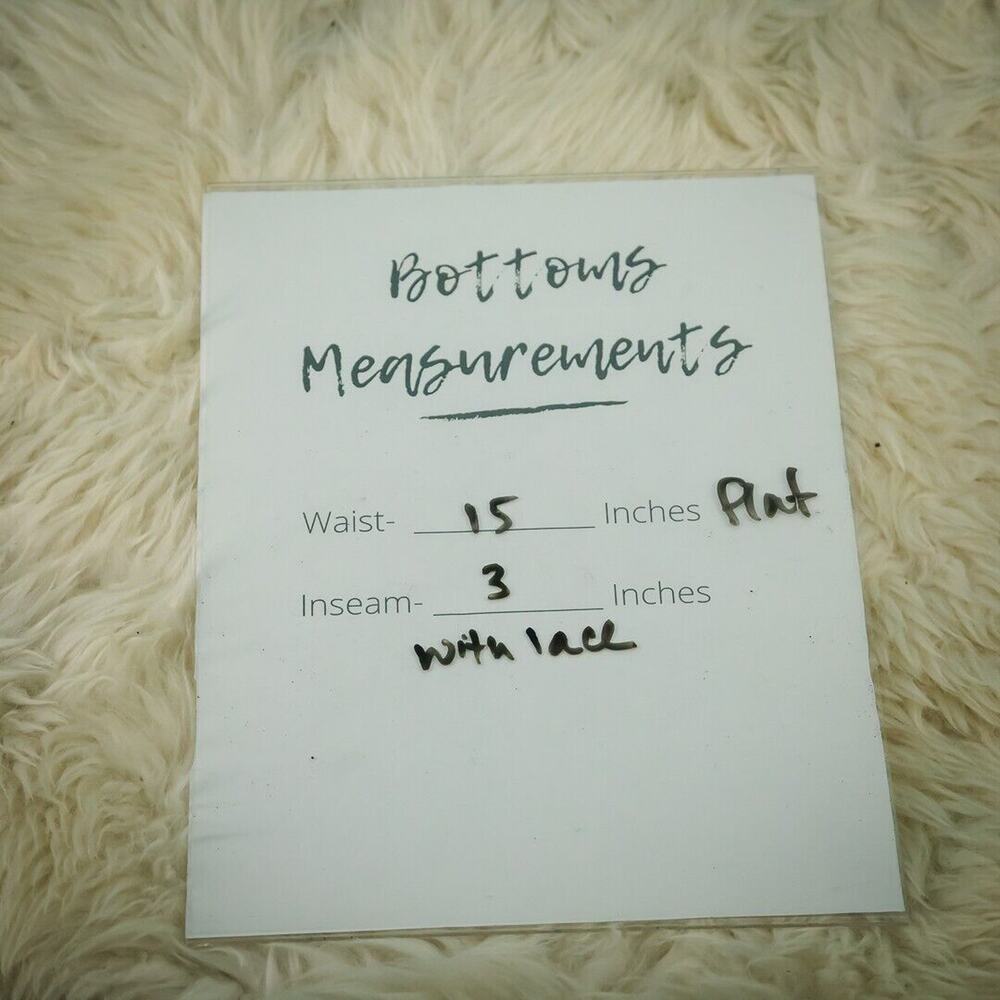 Bottoms
Measurements
Waist- 15 Inches Flat
Inseam- 3 Inches
with lace